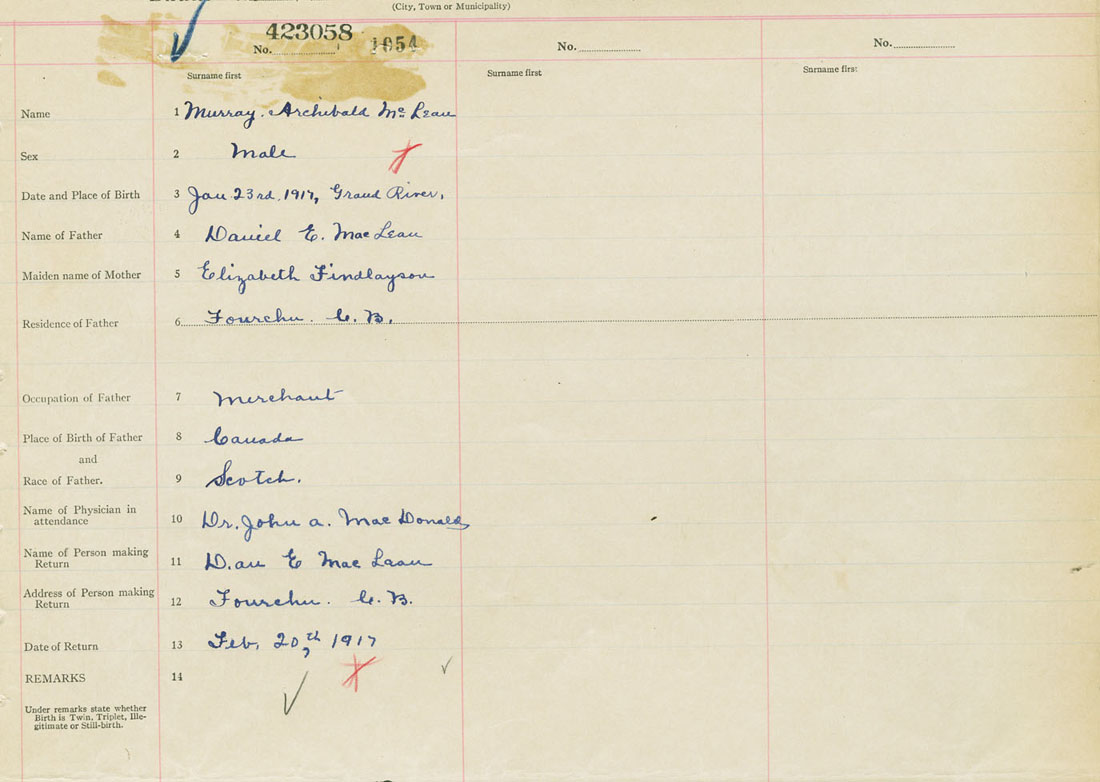 (City, Town or Municipality)
423058
No. 1054
No.
No.
Surname first
Surname first
Surname first
Name 1 Murray. Archibald Mc Lean
Sex 2 Male
Date and Place of Birth 3 Jan 23rd, 1917, Grand River,
Name of Father 4 Daniel E. Mac Lean
Maiden name of Mother 5 Elizabeth Findlayson
Residence of Father 6 Fourchu. C. B.
Occupation of Father 7 Merchant
Place of Birth of Father 8 Canada
and
Race of Father. 9 Scotch.
Name of Physician in
attendance 10 Dr. John A. Mac Donald
Name of Person making
Return 11 D.an E Mac Laan
Address of Person making
Return 12 Fourchu. C. B.
Date of Return 13 Feb, 20th, 1917
REMARKS 14
Under remarks state whether
Birth is Twin, Triplet, Ille-
gitimate or Still-birth.